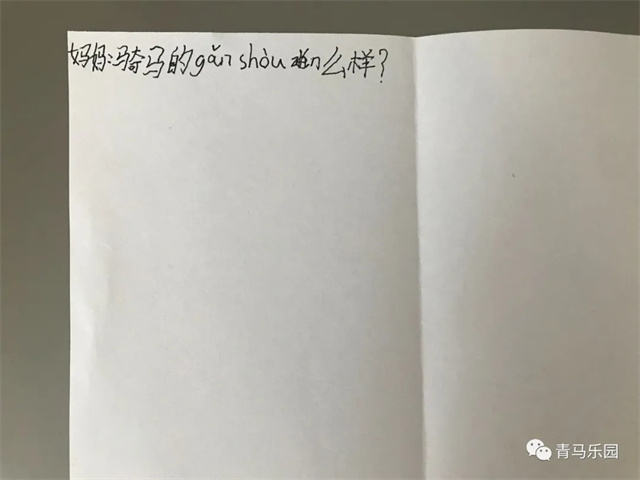 妈妈:骑马的gǎn shòu 么样?
青马乐园